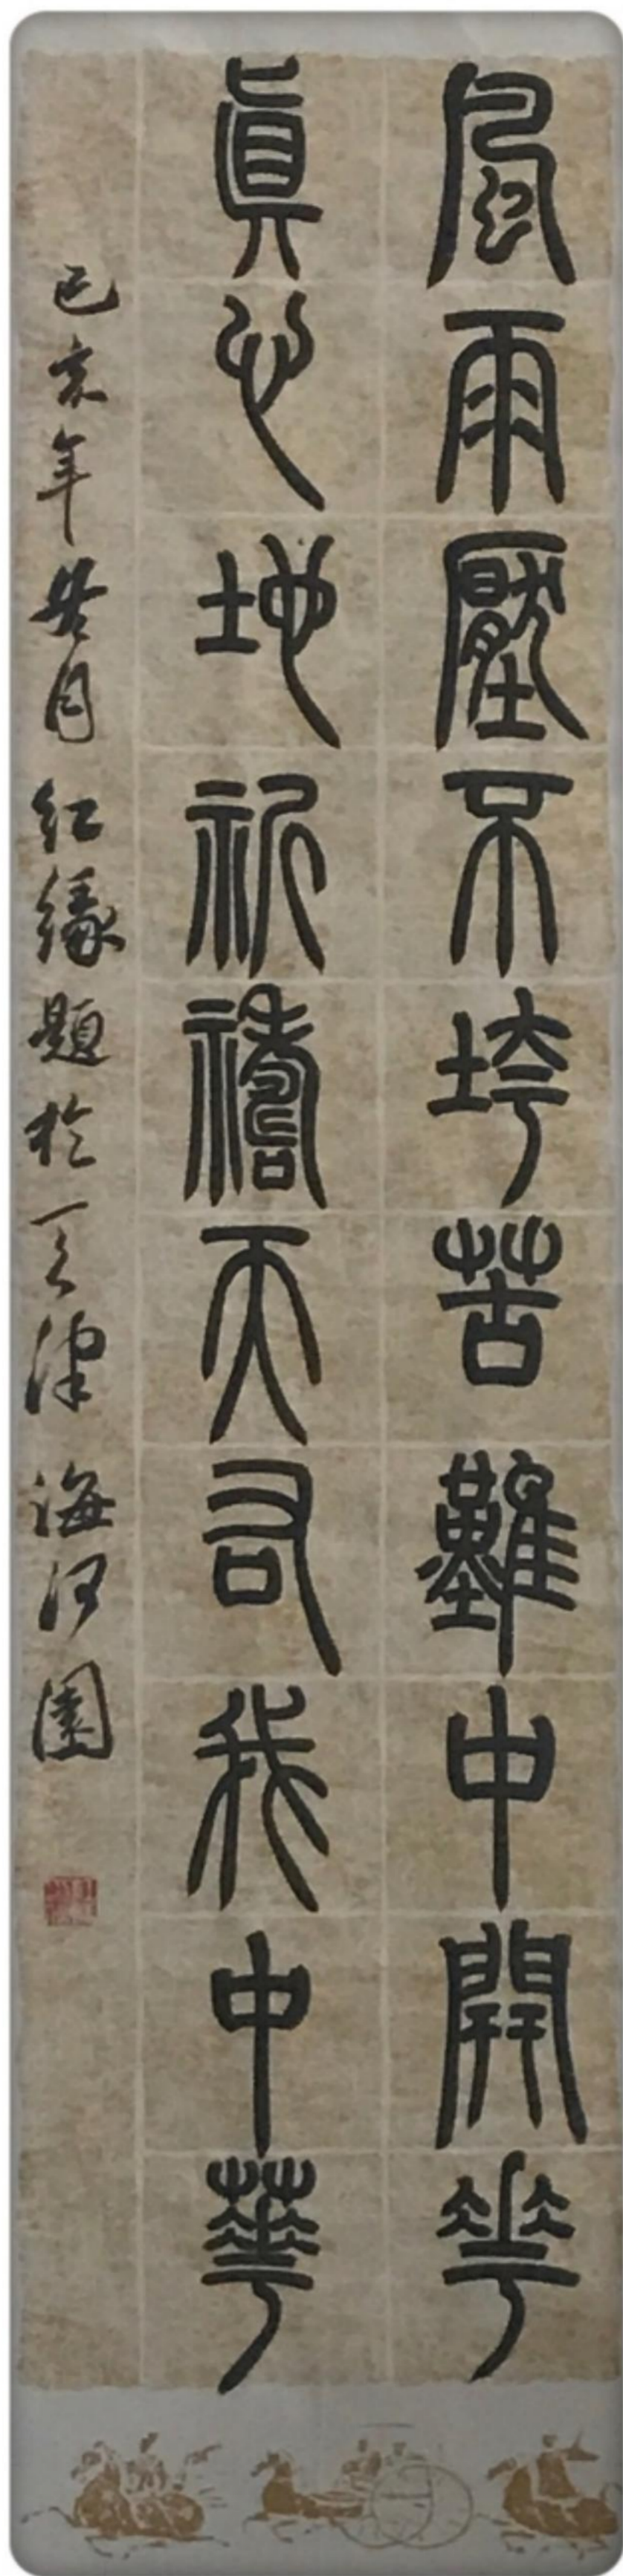 風雨壓不垮苦難中開華
真心地祈禱天右我中華
己亥年荅月红缘題於天津海河園